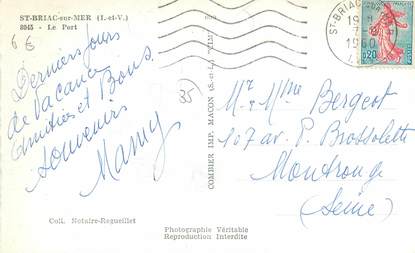 ST-BRIAC-sur-MER (I.-et-V.)
8045 - Le Port
6 €
Derniers jours
de vacances
Amitiés et Bons
souvenirs
Mamy
35
COMBIER IMP. MACON (S.-et-L.)
ST-BRIAC
19
1960
0,20
Mr & Mme Bergeot
107 av. P. Brossolette
Montrouge
(Seine)
Coll. Notaire-Regueillet
Photographie Véritable
Reproduction Interdite